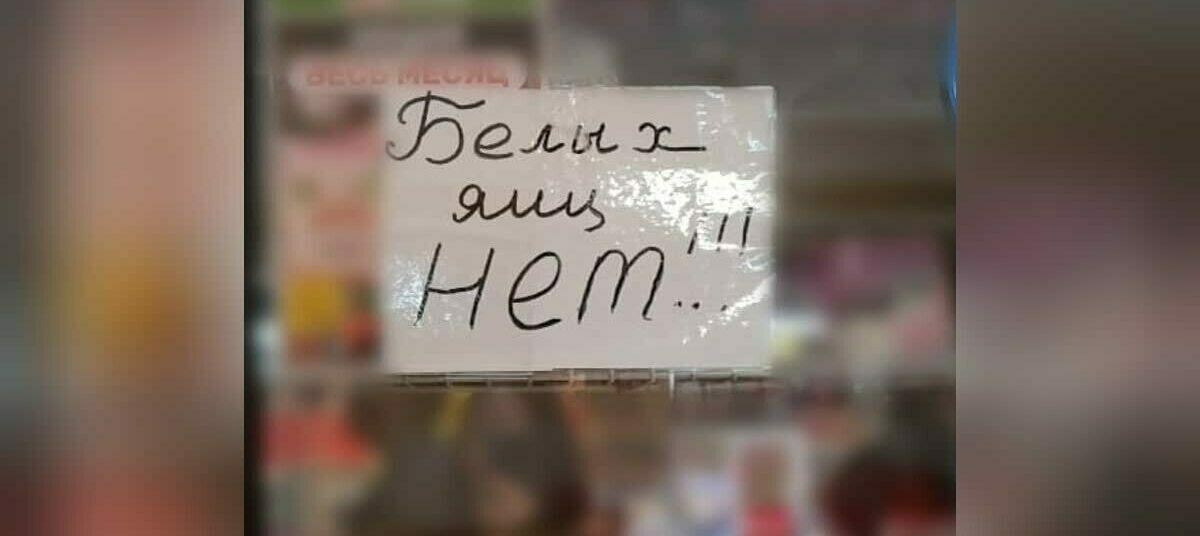 ВЕСЬ МЕСЯЦ
Белых
яиц
Нет!!!